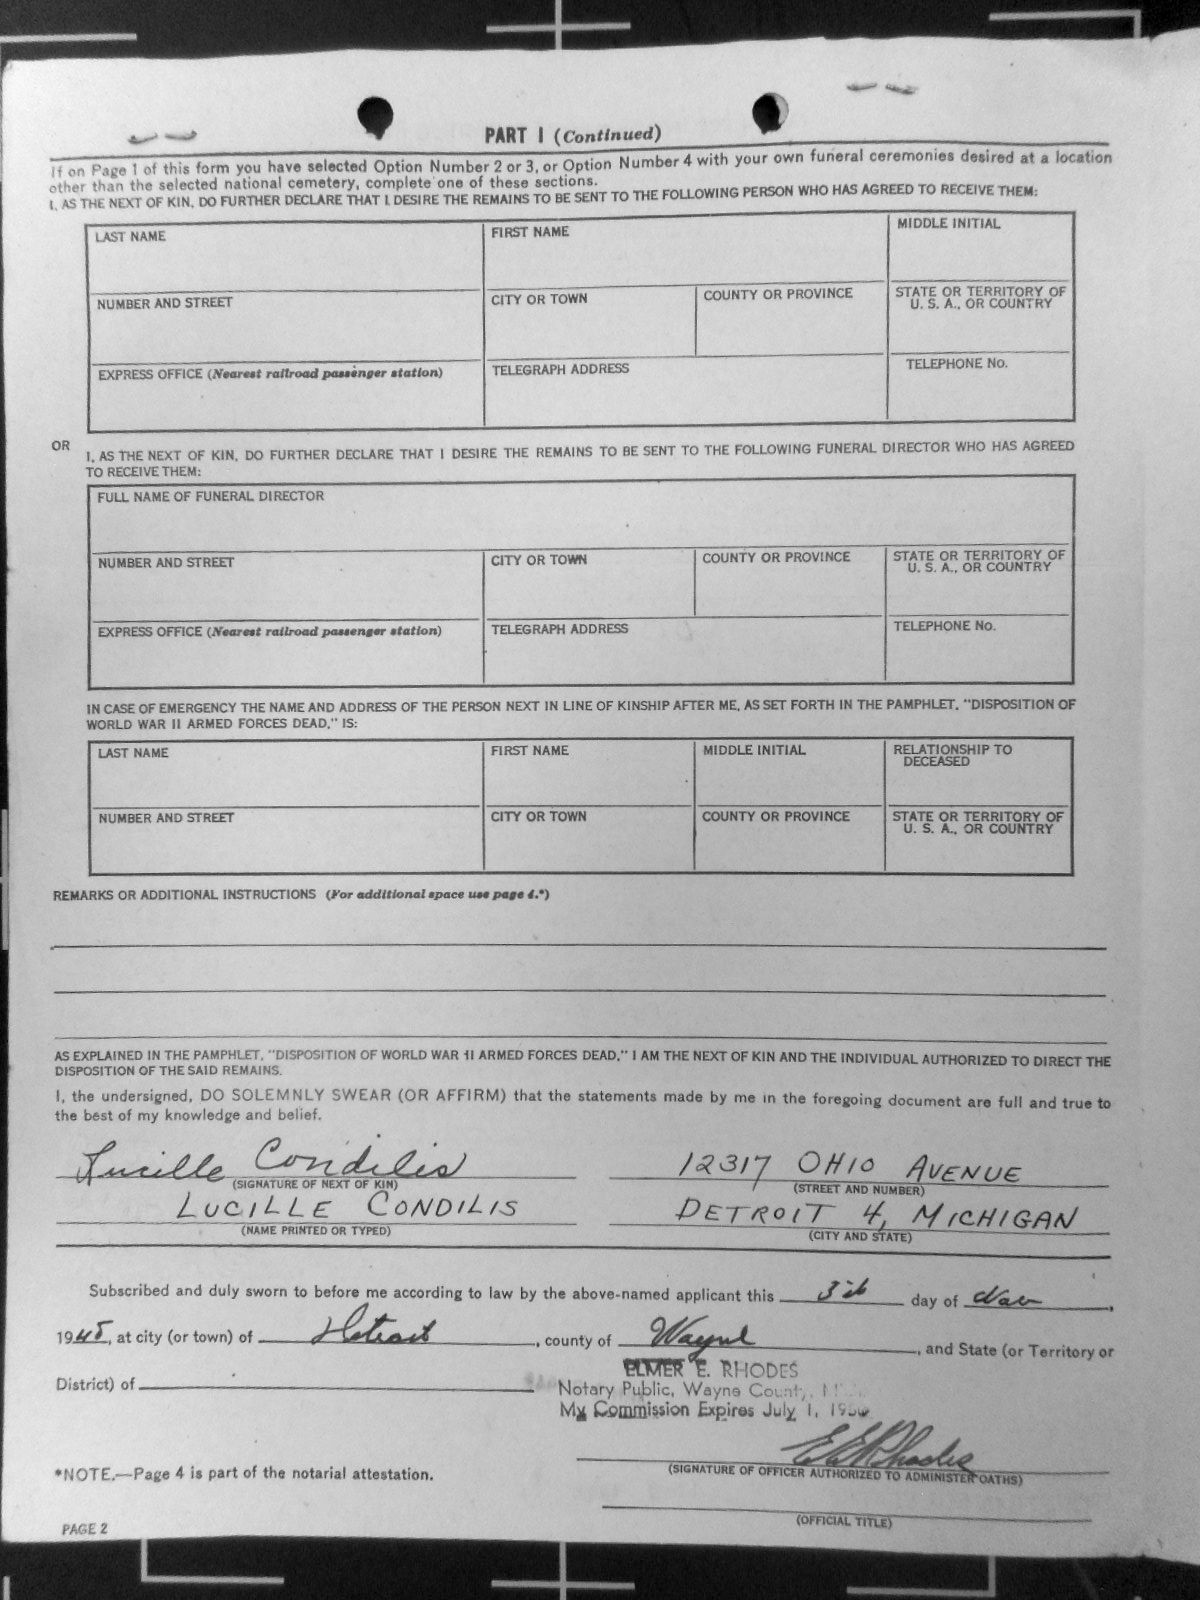 PART I (Continued)
If on Page 1 of this form you have selected Option Number 2 or 3, or Option Number 4 with your own funeral ceremonies desired at a location
other than the selected national cemetery, complete one of these sections.
I, AS THE NEXT OF KIN, DO FURTHER DECLARE THAT I DESIRE THE REMAINS TO BE SENT TO THE FOLLOWING PERSON WHO HAS AGREED TO RECEIVE THEM:
LAST NAME FIRST NAME MIDDLE INITIAL
NUMBER AND STREET CITY OR TOWN COUNTY OR PROVINCE STATE OR TERRITORY OF
U. S. A., OR COUNTRY
EXPRESS OFFICE (Nearest railroad passenger station) TELEGRAPH ADDRESS TELEPHONE No.
OR
I, AS THE NEXT OF KIN, DO FURTHER DECLARE THAT I DESIRE THE REMAINS TO BE SENT TO THE FOLLOWING FUNERAL DIRECTOR WHO HAS AGREED
TO RECEIVE THEM:
FULL NAME OF FUNERAL DIRECTOR
NUMBER AND STREET CITY OR TOWN COUNTY OR PROVINCE STATE OR TERRITORY OF
U. S. A., OR COUNTRY
EXPRESS OFFICE (Nearest railroad passenger station) TELEGRAPH ADDRESS TELEPHONE No.
IN CASE OF EMERGENCY THE NAME AND ADDRESS OF THE PERSON NEXT IN LINE OF KINSHIP AFTER ME, AS SET FORTH IN THE PAMPHLET, "DISPOSITION OF
WORLD WAR II ARMED FORCES DEAD," IS:
LAST NAME FIRST NAME MIDDLE INITIAL RELATIONSHIP TO
DECEASED
NUMBER AND STREET CITY OR TOWN COUNTY OR PROVINCE STATE OR TERRITORY OF
U. S. A., OR COUNTRY
REMARKS OR ADDITIONAL INSTRUCTIONS (For additional space use page 4.*)
AS EXPLAINED IN THE PAMPHLET, "DISPOSITION OF WORLD WAR II ARMED FORCES DEAD," I AM THE NEXT OF KIN AND THE INDIVIDUAL AUTHORIZED TO DIRECT THE
DISPOSITION OF THE SAID REMAINS.
I, the undersigned, DO SOLEMNLY SWEAR (OR AFFIRM) that the statements made by me in the foregoing document are full and true to
the best of my knowledge and belief.
Lucille Condilis 12317 OHIO AVENUE
(SIGNATURE OF NEXT OF KIN) (STREET AND NUMBER)
LUCILLE CONDILIS DETROIT 4, MICHIGAN
(NAME PRINTED OR TYPED) (CITY AND STATE)
Subscribed and duly sworn to before me according to law by the above-named applicant this day of Nov,
19, at city (or town) of Detroit, county of Wayne, and State (or Territory or
ELMER E. RHODES
District) of Notary Public, Wayne County,
My Commission Expires July 1, 1950
E E Rhodes
*NOTE.—Page 4 is part of the notarial attestation. (SIGNATURE OF OFFICER AUTHORIZED TO ADMINISTER OATHS)
(OFFICIAL TITLE)
PAGE 2